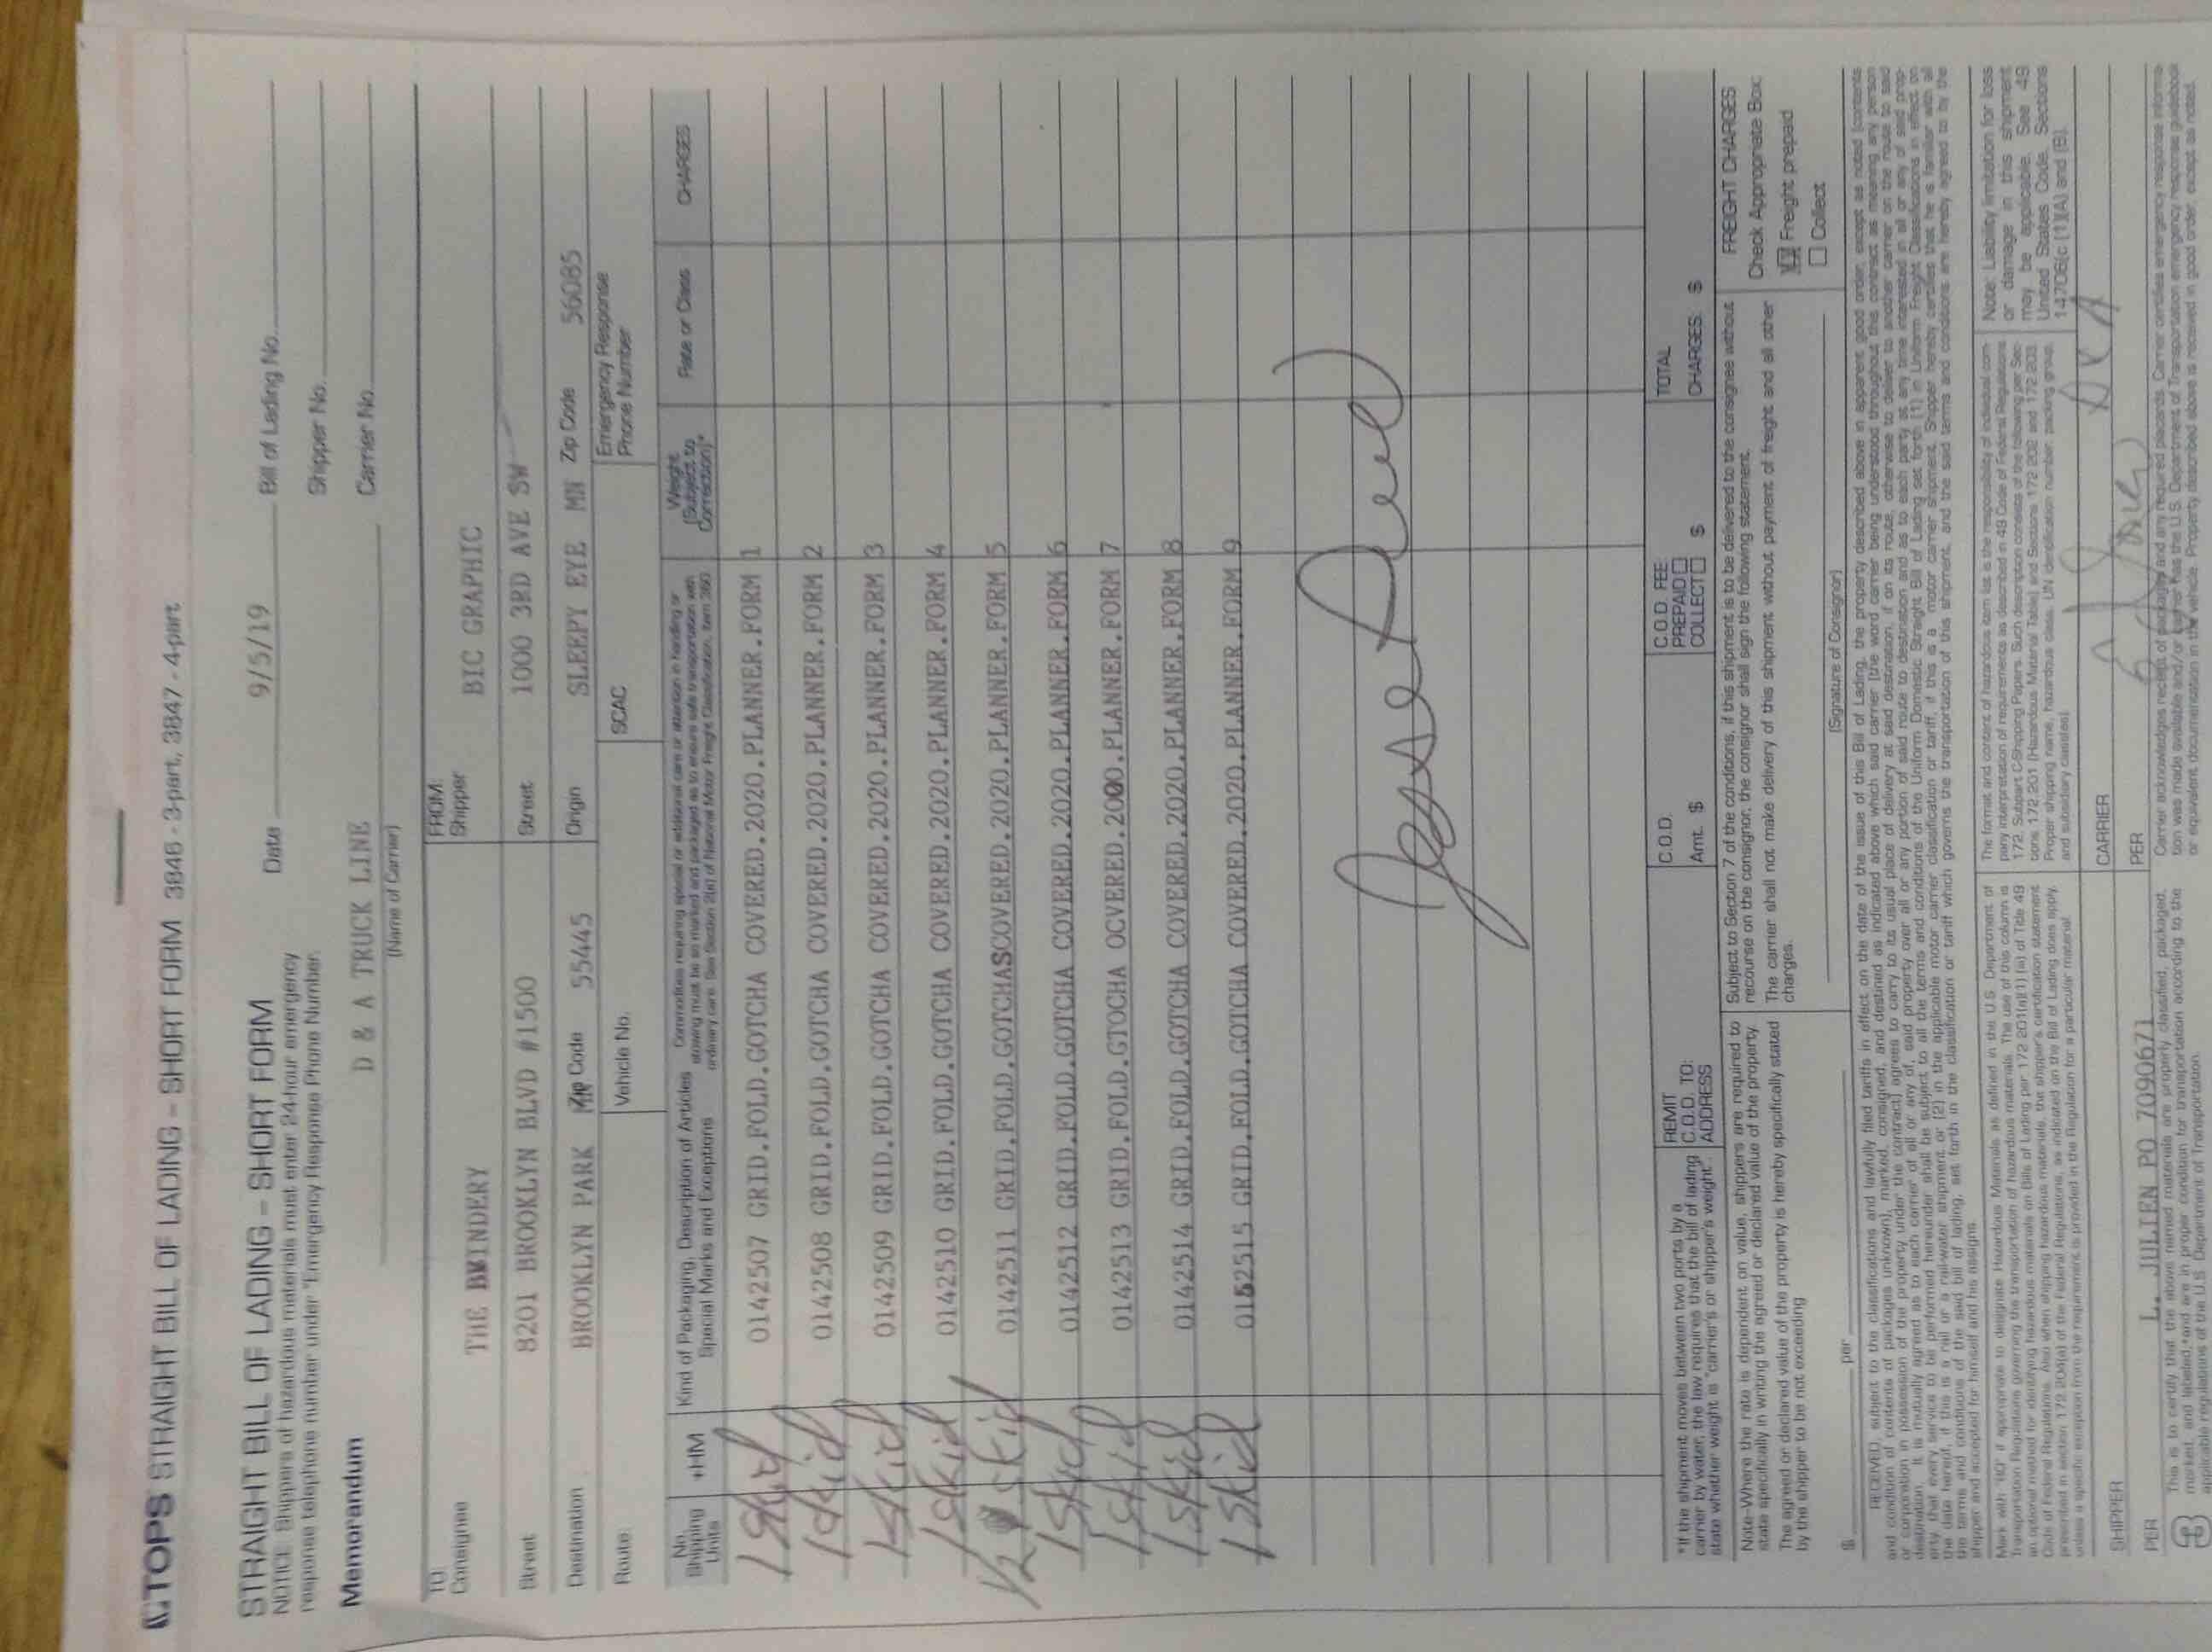 TOPS STRAIGHT BILL OF LADING – SHORT FORM 3846 - 3-part, 3847 - 4-part
STRAIGHT BILL OF LADING – SHORT FORM
NOTICE: Shippers of hazardous materials must enter 24-hour emergency
response telephone number under "Emergency Response Phone Number.
Date 9/5/19 Bill of Lading No.
Shipper No.
Memorandum D & A TRUCK LINE Carrier No.
(Name of Carrier)
TO: FROM:
Consignee THE BINDERY Shipper BIC GRAPHIC
Street 8201 BROOKLYN BLVD #1500 Street 1000 3RD AVE SW
Destination BROOKLYN PARK Code 55445 Origin SLEEPY EYE MN Zip Code 56085
Route: Vehicle No. SCAC Emergency Response
Phone Number
No. Shipping Units +HM Kind of Packaging, Description of Articles Special Marks and Exceptions Weight (Subject to Correction)* Rate or Class CHARGES
Commodities requiring special or additional care or attention in handling or
stowing must be so marked and packaged as to ensure safe transportation with
ordinary care. See Section 2(e) of National Motor Freight Classification, Item 360
1 skid 0142507 GRID.FOLD.GOTCHA COVERED.2020.PLANNER.FORM 1
1 skid 0142508 GRID.FOLD.GOTCHA COVERED.2020.PLANNER.FORM 2
1 skid 0142509 GRID.FOLD.GOTCHA COVERED.2020.PLANNER.FORM 3
1 skid 0142510 GRID.FOLD.GOTCHA COVERED.2020.PLANNER.FORM 4
1/2 skid 0142511 GRID.FOLD.GOTCHASCOVERED.2020.PLANNER.FORM 5
1 skid 0142512 GRID.FOLD.GOTCHA COVERED.2020.PLANNER.FORM 6
1 skid 0142513 GRID.FOLD.GTOCHA OCVERED.2000.PLANNER.FORM 7
1 skid 0142514 GRID.FOLD.GOTCHA COVERED.2020.PLANNER.FORM 8
1 skid GRID.FOLD.GOTCHA COVERED.2020.PLANNER.FORM 9
Jesse
*If the shipment moves between two ports by a
carrier by water, the law requires that the bill of lading
state whether weight is "carrier's or shipper's weight".
REMIT
C.O.D. TO:
ADDRESS
C.O.D.
Amt. $
C.O.D. FEE:
PREPAID
COLLECT $
TOTAL
CHARGES: $
Note–Where the rate is dependent on value, shippers are required to
state specifically in writing the agreed or declared value of the property.
The agreed or declared value of the property is hereby specifically stated
by the shipper to be not exceeding
$ per
Subject to Section 7 of the conditions, if this shipment is to be delivered to the consignee without
recourse on the consignor, the consignor shall sign the following statement.
The carrier shall not make delivery of this shipment without payment of freight and all other
charges.
(Signature of Consignor)
FREIGHT CHARGES
Check Appropriate Box:
Freight prepaid
Collect
RECEIVED, subject to the classifications and lawfully filed tariffs in effect on the date of the issue of this Bill of Lading, the property described above in apparent good order, except as noted (contents
and condition of contents of packages unknown), marked, consigned, and destined as indicated above which said carrier (the word carrier being understood throughout this contract as meaning any person
or corporation in possession of the property under the contract) agrees to carry to its usual place of delivery at said destination, if on its route, otherwise to deliver to another carrier on the route to said
destination. It is mutually agreed as to each carrier of all or any of, said property over all or any portion of said route to destination and as to each party at any time interested in all or any of said prop-
erty, that every service to be performed hereunder shall be subject to all the terms and conditions of the Uniform Domestic Straight Bill of Lading set forth (1) in Uniform Freight Classifications in effect on
the date hereof, if this is a rail or a rail-water shipment, or (2) in the applicable motor carrier classification or tariff, if this is a motor carrier shipment. Shipper hereby certifies that he is familiar with all
the terms and conditions of the said bill of lading, set forth in the classification or tariff which governs the transportation of this shipment, and the said terms and conditions are hereby agreed to by the
shipper and accepted for himself and his assigns.
Mark with "RQ" if appropriate to designate Hazardous Materials as defined in the U.S. Department of
Transportation Regulations governing the transportation of hazardous materials. The use of this column is
an optional method for identifying hazardous materials on Bills of Lading per 172.201(a)(1) (iii) of Title 49
Code of Federal Regulations. Also when shipping hazardous materials, the shipper's certification statement
prescribed in section 172.204(a) of the Federal Regulations, as indicated on the Bill of Lading does apply,
unless a specific exception from the requirement is provided in the Regulation for a particular material.
The format and content of hazardous item list is the responsibility of individual com-
pany interpretation of requirements as described in 49 Code of Federal Regulations
172. Subpart C-Shipping Papers. Such description consists of the following per Sec-
tions 172.201 (Hazardous Material Table) and Sections 172.202 and 172.203:
Proper shipping name, hazardous class, UN identification number, packing group,
and subsidiary class(es)
Note: Liability limitation for loss
or damage in this shipment
may be applicable. See 49
United States Code, Sections
14706(c (1)(A) and (B).
SHIPPER CARRIER
PER L. JULIEN PO 7090671 PER
This is to certify that the above named materials are properly classified, packaged,
marked, and labeled, and are in proper condition for transportation according to the
applicable regulations of the U.S. Department of Transportation.
Carrier acknowledges receipt of packages and any required placards. Carrier certifies emergency response informa-
tion was made available and/or carrier has the U.S. Department of Transportation emergency response guidebook
or equivalent documentation in the vehicle. Property described above is received in good order, except as noted.